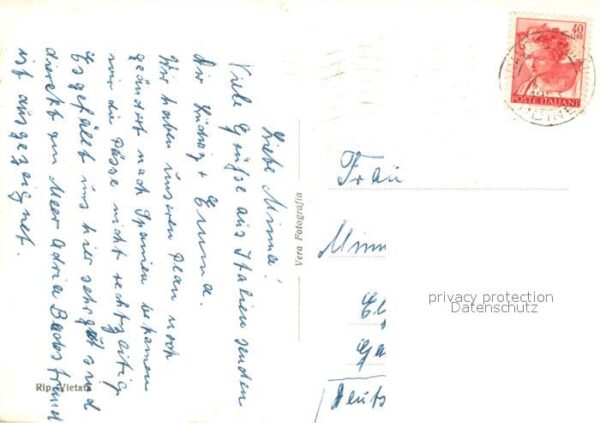 Liebe Minna!
Viele Grüße aus Italien senden
Dir Ludwig + Emma.
Wir haben unseren Plan noch
geändert nach Spanien bekamen
wir die Pässe nicht rechtzeitig
Es gefällt uns hier sehr gut sind
direkt am Meer Adria Badestrand
ist ausgezeignet.
Vera Fotografia
Rip. Vietata
40
LIRE
POSTE ITALIANE
UDINE
Frau
Minn
Ga
Deuts
privacy protection
Datenschutz